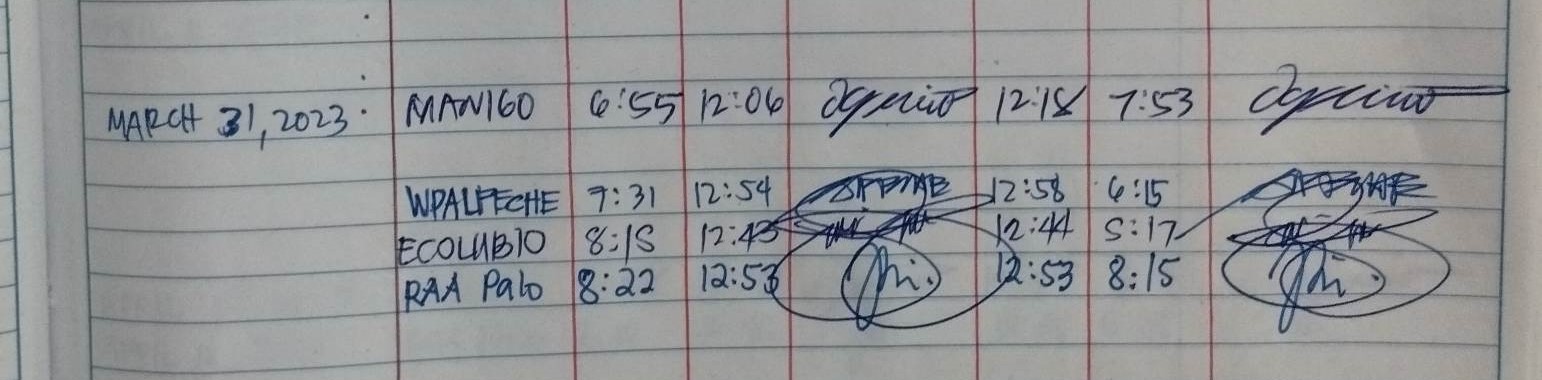 MARCH 31, 2023 MANIGO 6:55 12:06 12:18 7:53
WPALFECHE 7:31 12:54 12:58 6:15
ECOLUBIO 8:15 12:43 12:44 5:17
RAA Palo 8:22 12:53 12:53 8:15